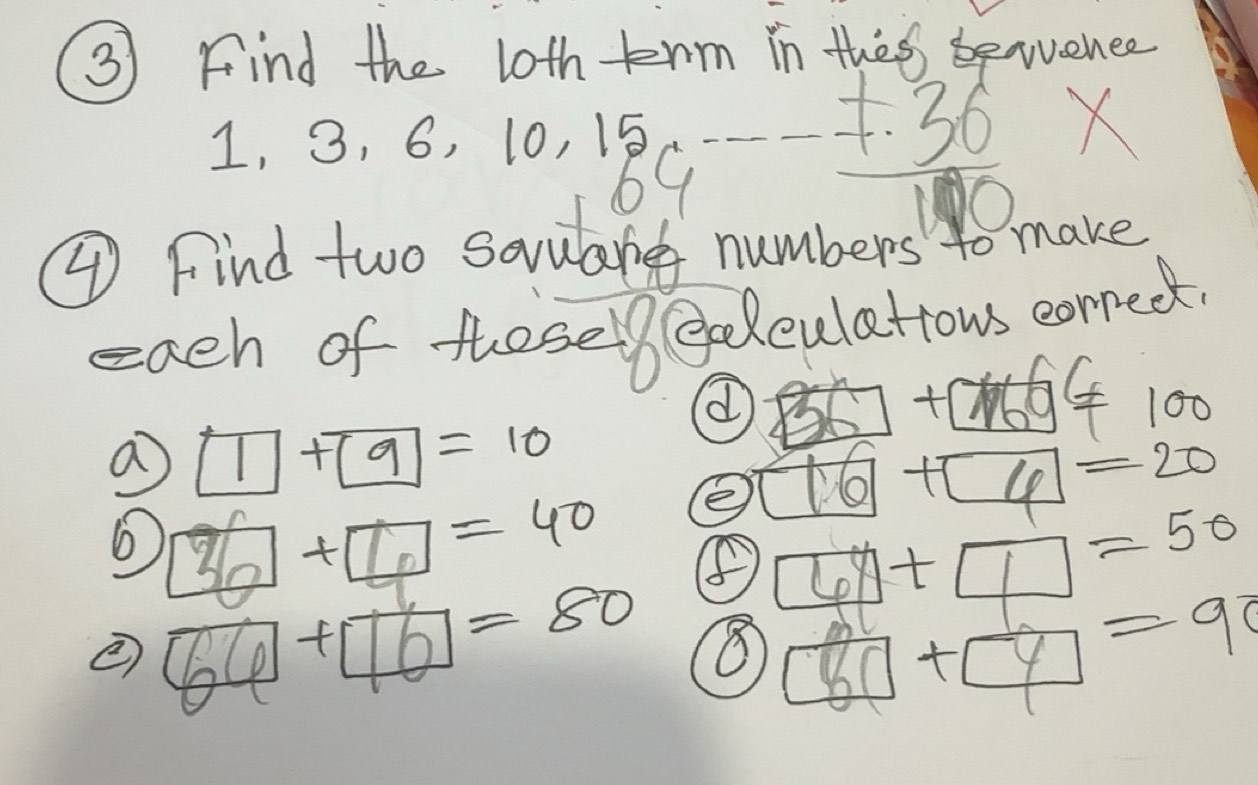 ③ Find the 10th term in this sequence
1, 3, 6, 10, 15, ----
+ 36 X
+ 64
100
④ Find two square numbers to make
each of these calculations correct.
a) 1 + 9 = 10
b) 36 + 4 = 40
c) 64 + 16 = 80
d 36 + 64 = 100
e 16 + 4 = 20
f + 1 = 50
g 81 + 9 = 90